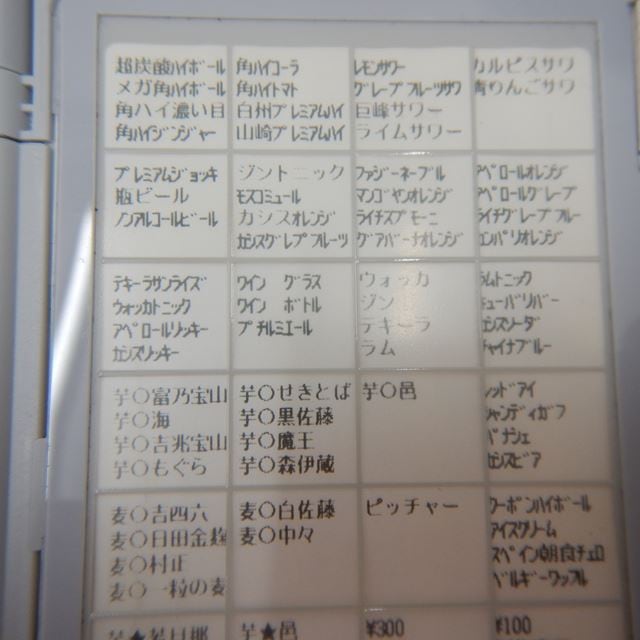 超炭酸ハイボール
メガ角ハイボール
角ハイ濃い目
角ハイジンジャー
角ハイコーラ
角ハイトマト
白州プレミアムハイ
山崎プレミアムハイ
レモンサワー
グレープフルーツサワ
巨峰サワー
ライムサワー
カルピスサワ
青りんごサワ
プレミアムジョッキ
瓶ビール
ノンアルコールビール
ジントニック
モスコミュール
カシスオレンジ
カシスグレープフルーツ
ファジーネーブル
マンゴヤンオレンジ
ライチズモーニ
グアバーナオレンジ
アペロールオレンジ
アペロールグレープ
ライチグレープフルー
カンパリオレンジ
テキーラサンライズ
ウォッカトニック
アペロールリッキー
カシスリッキー
ワイン グラス
ワイン ボトル
プチルミエール
ウォッカ
ジン
テキーラ
ラム
ラムトニック
キューバリバー
カシスソーダ
チャイナブルー
芋〇富乃宝山
芋〇海
芋〇吉兆宝山
芋〇もぐら
芋〇せきとば
芋〇黒佐藤
芋〇魔王
芋〇森伊蔵
芋〇邑
レッドアイ
シャンディガフ
パナシェ
カシスビア
麦〇吉四六
麦〇日田金麹
麦〇村正
麦〇一粒の麦
麦〇白佐藤
麦〇中々
ピッチャー
クーポンハイボール
アイスクリーム
スペイン朝食チュロ
ベルギーワッフル
芋★若旦那
芋★邑
¥300
¥100